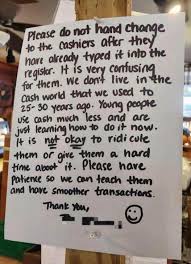 Please do not hand change
to the cashiers after they
have already typed it into the
register. It is very confusing
for them. We don't live in the
cash world that we used to
25-30 years ago. Young people
use cash much less and are
just learning how to do it now.
It is not okay to ridicule
them or give them a hard
time about it. Please have
patience so we can teach them
and have smoother transactions.
Thank you,